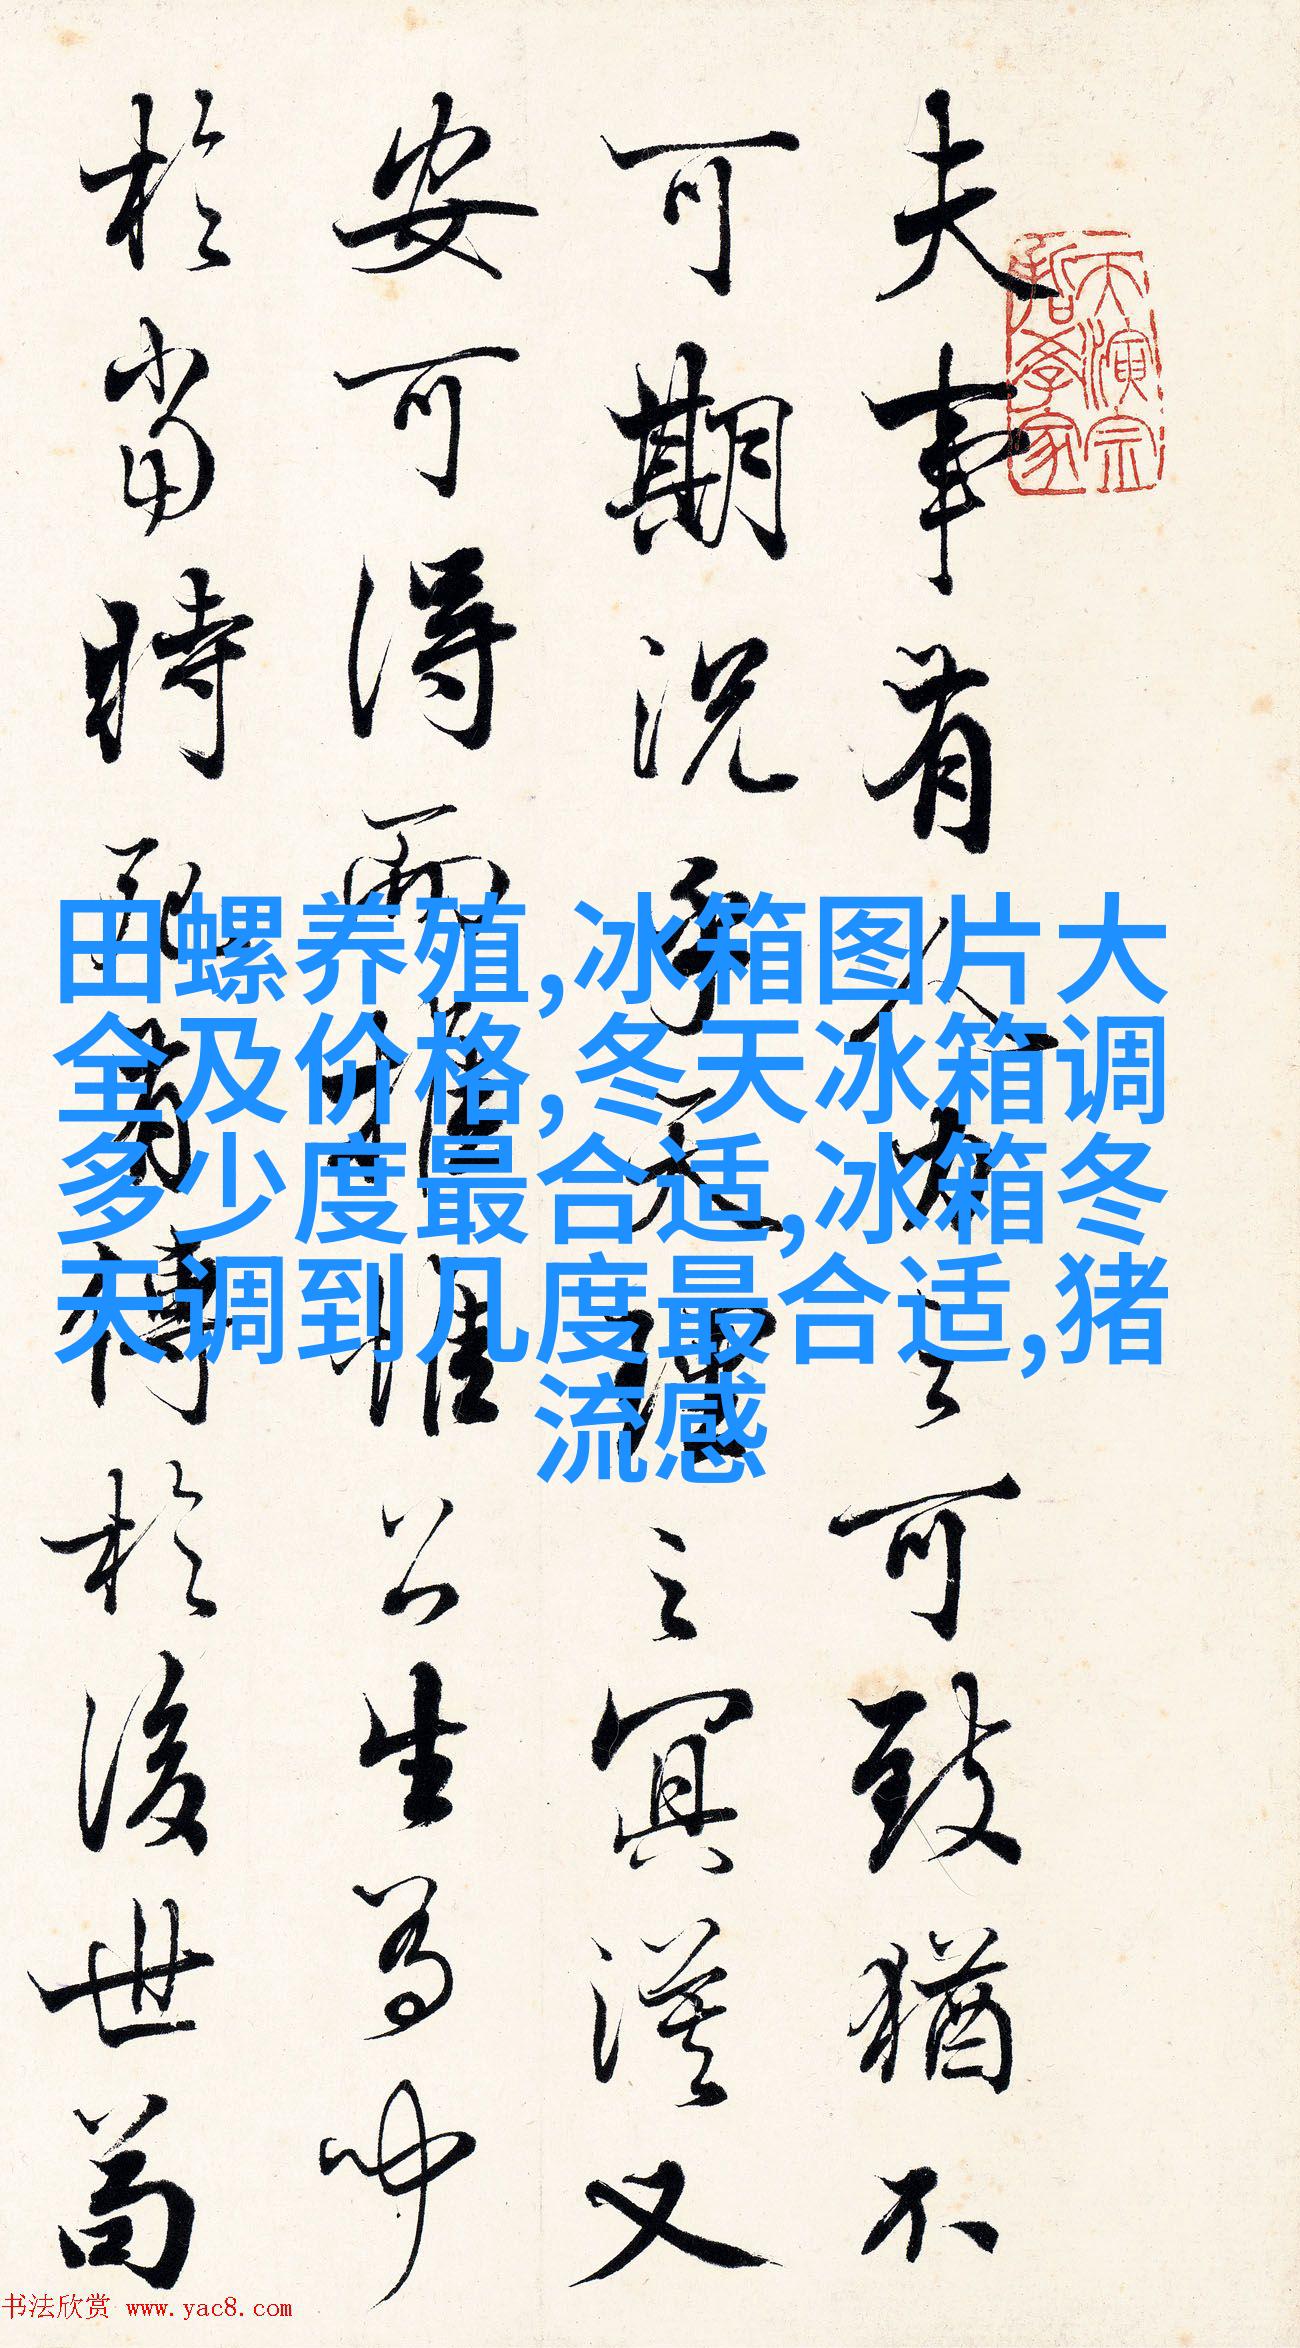 夫事有人力之可致猶不
可期況乎天理之冥漠又
安可得而推惟公生有聞
於當時死有傳於後世苟
天演宗
哲學家
田螺养殖,冰箱图片大
全及价格,冬天冰箱调
多少度最合适,冰箱冬
天调到几度最合适,猪
流感
书法欣赏 www.yac8.com